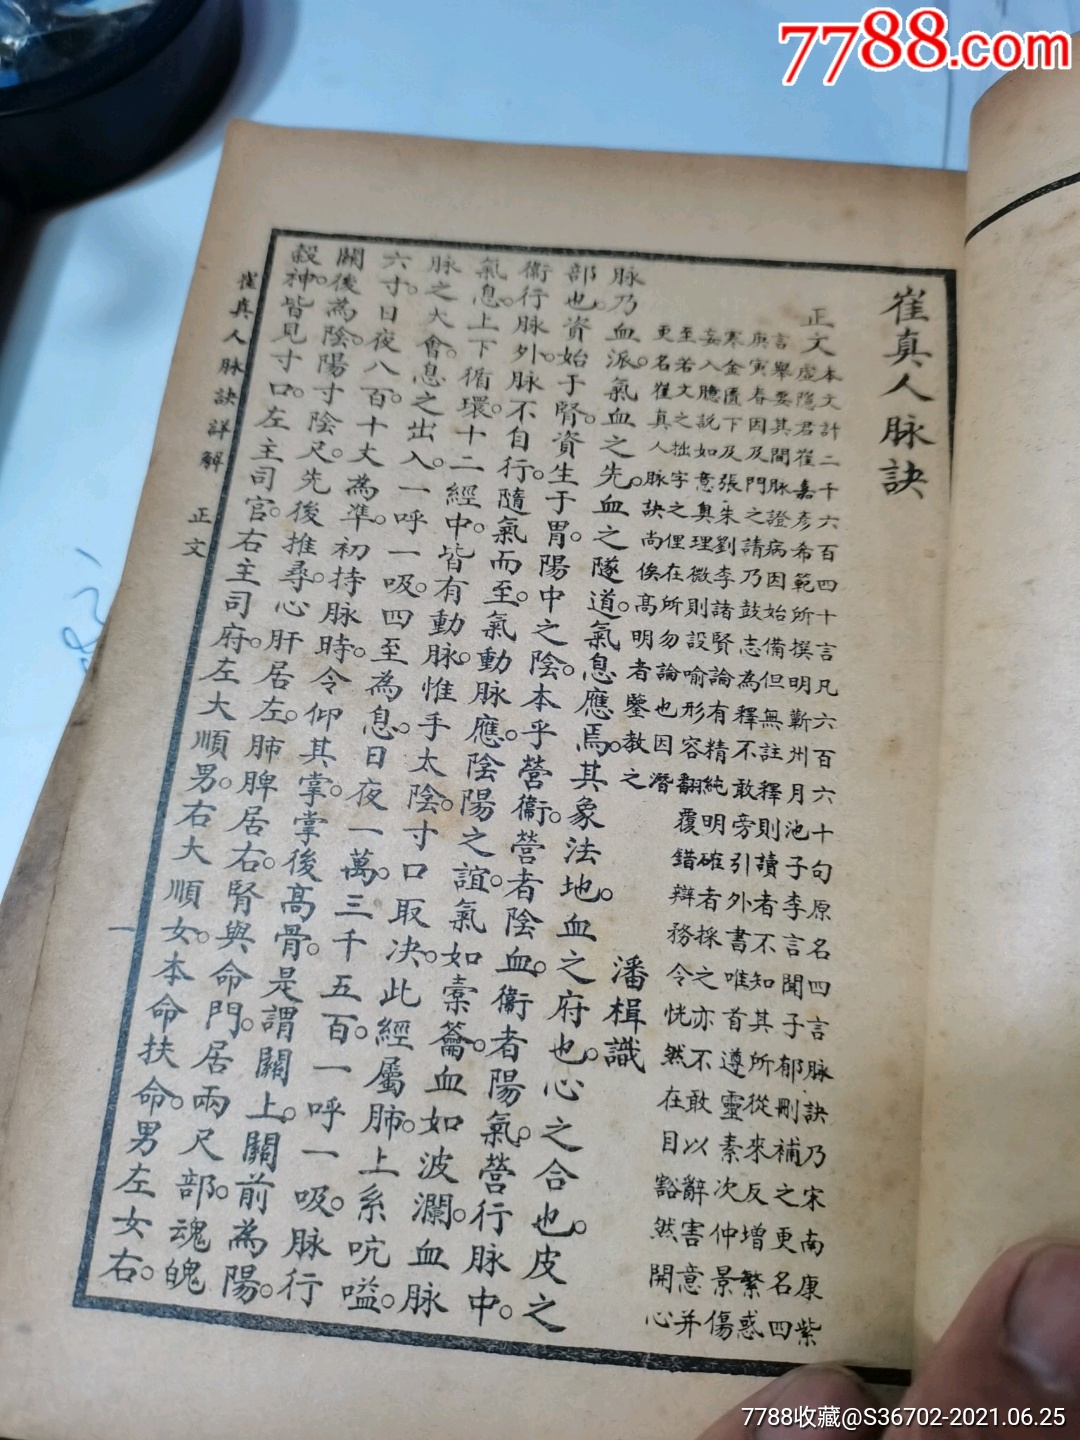 崔真人脉訣
正文
本文計二千六百四十言凡六百六十句原名四言脉訣乃宋南康紫
虛隱君崔嘉彥希範所撰明蘄州月池子李言聞子郁刪補之更名四
言舉要其間脉證病因始備但無註釋則讀者不知其所從來反增繁惑
庚寅春因及門之請乃鼓志為釋不敢旁引外書唯首遵靈素次仲景傷
寒金匱下及張朱劉李諸賢論有精純明確者採之亦不敢以辭害意并
妄入臆說如意奧理微則設喻形容翻覆錯辯務令恍然在目豁然開心
至若文之拙字之俚在所勿論也因潛
更名崔真人脉訣尚俟高明者鑒教之
潘楫識
脉乃血派。氣血之先。血之隧道。氣息應焉。其象法地。血之府也。心之合也。皮之
部也。資始于腎。資生于胃。陽中之陰。本乎營衞。營者陰血。衞者陽氣。營行脉中。
衞行脉外。脉不自行。隨氣而至。氣動脉應。陰陽之誼。氣如橐籥。血如波瀾。血脉
氣息。上下循環。十二經中。皆有動脉。惟手太陰。寸口取決。此經屬肺。上系吭嗌。
脉之大會。息之出入。一呼一吸。四至為息。日夜一萬。三千五百。一呼一吸。脉行
六寸。日夜八百。十丈為準。初持脉時。令仰其掌。掌後高骨。是謂關上。關前為陽。
關後為陰。陽寸陰尺。先後推尋。心肝居左。肺脾居右。腎與命門。居兩尺部。魂魄
穀神。皆見寸口。左主司官。右主司府。左大順男。右大順女。本命扶命。男左女右。
崔真人脉訣詳解 正文
一
7788.com
7788收藏@S36702-2021.06.25